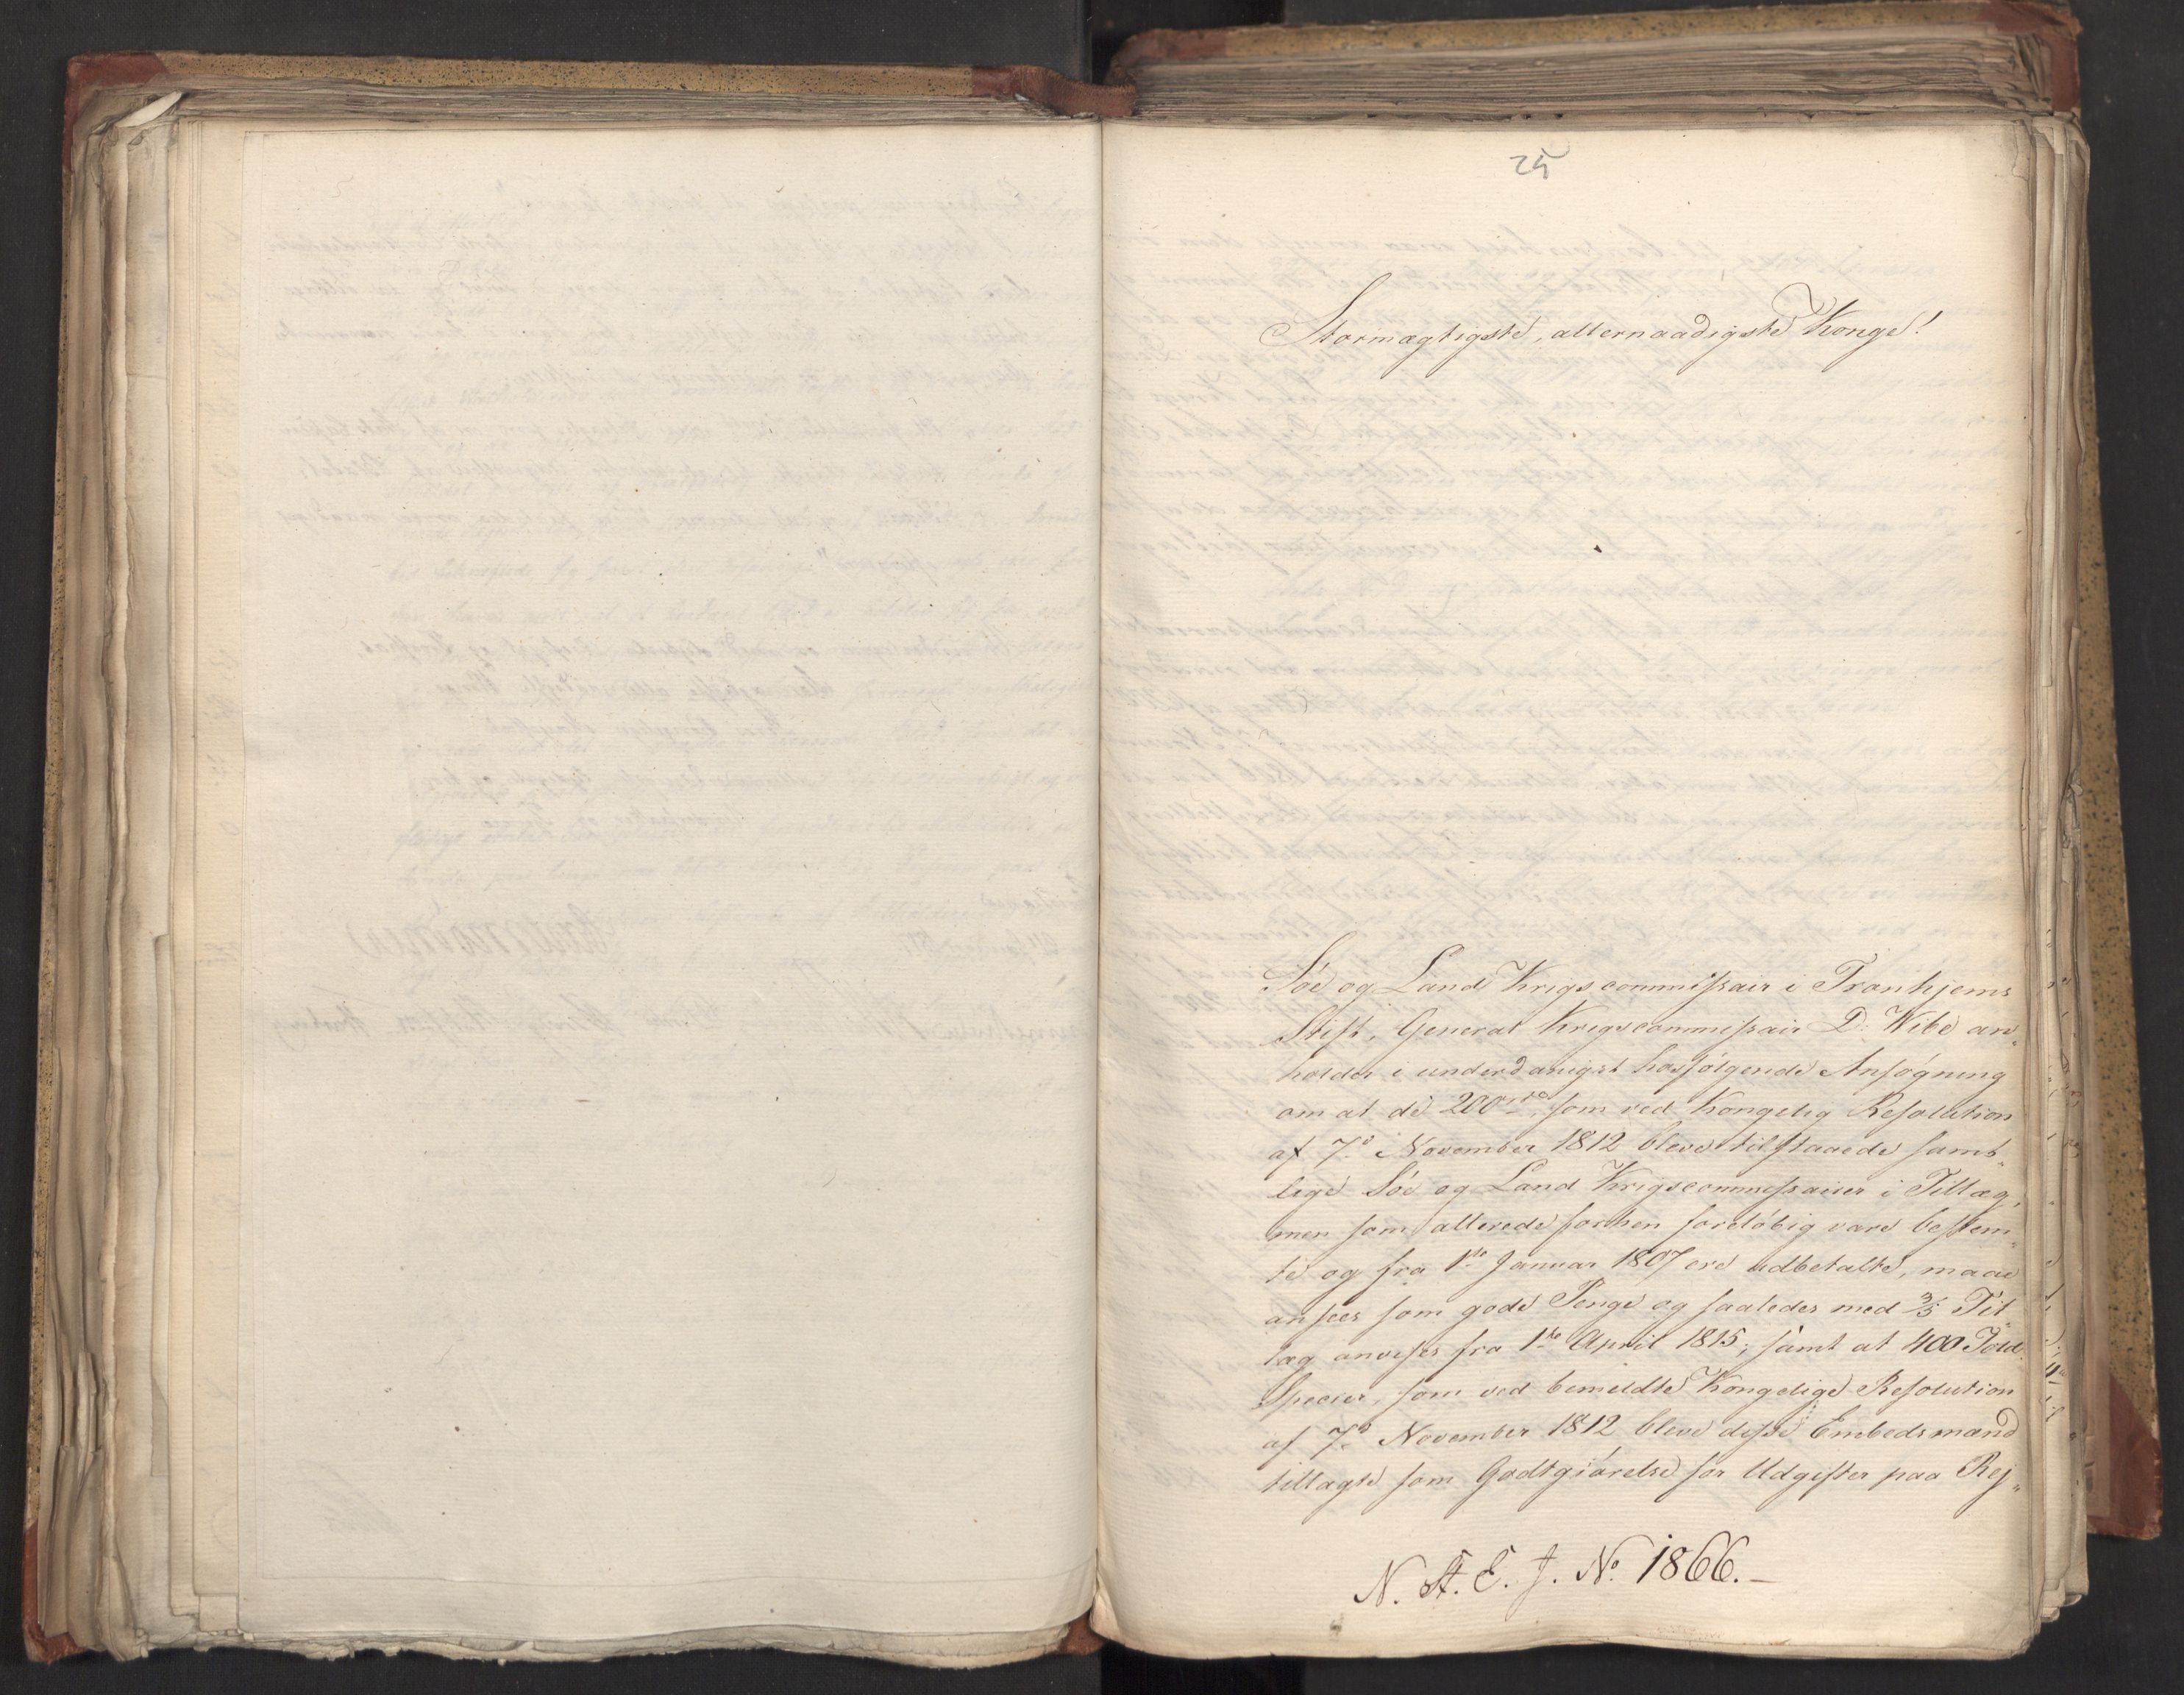 25
Stormægtigste, allernaadigste Konge!
Söe og Land Krigscommissair i Tronhjems
Stift, General Krigscommissair D. Wibe an„
holder i underdanigst hosfölgende Ansögning
om at de 200 rdr, som ved Kongelig Resolution
af 7de November 1812 bleve tilstaaede samt„
lige Söe og Land Krigscommissairer i Tillæg,
men som allerede forhen foreløbig vare bestem„
te og fra 1ste Januar 1807 ere udbetalte, maae
ansees som gode Penge og saaledes med 3/5 Til„
læg anvises fra 1ste April 1815; samt at 400 Told
Species, som ved bemeldte Kongelige Resolution
af 7de November 1812 bleve disse Embedsmænd
tillagte som Godtgiörelse for Udgifter paa Rej„
N. St. E. J. No. 1866.–